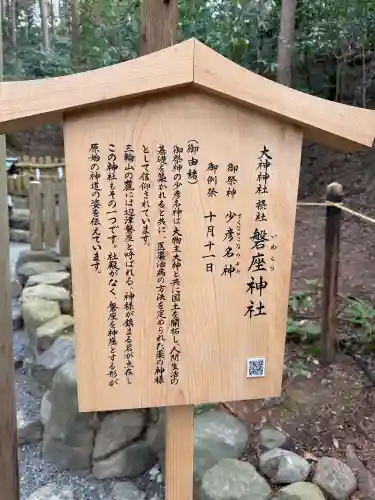 大神神社 摂社 磐座神社
いわくら
御祭神 少彦名神
すくなひこなのかみ
御例祭 十月十一日
(御由緒)
御祭神の少彦名神は大物主大神と共に国土を開拓し、人間生活の
基礎を築かれると共に、医薬治病の方法を定められた薬の神様
として信仰されています。
三輪山の麓には辺津磐座と呼ばれる、神様が鎮まる岩が点在し
この神社もその一つです。社殿がなく、磐座を神座とする形が
原始の神道の姿を伝えています。